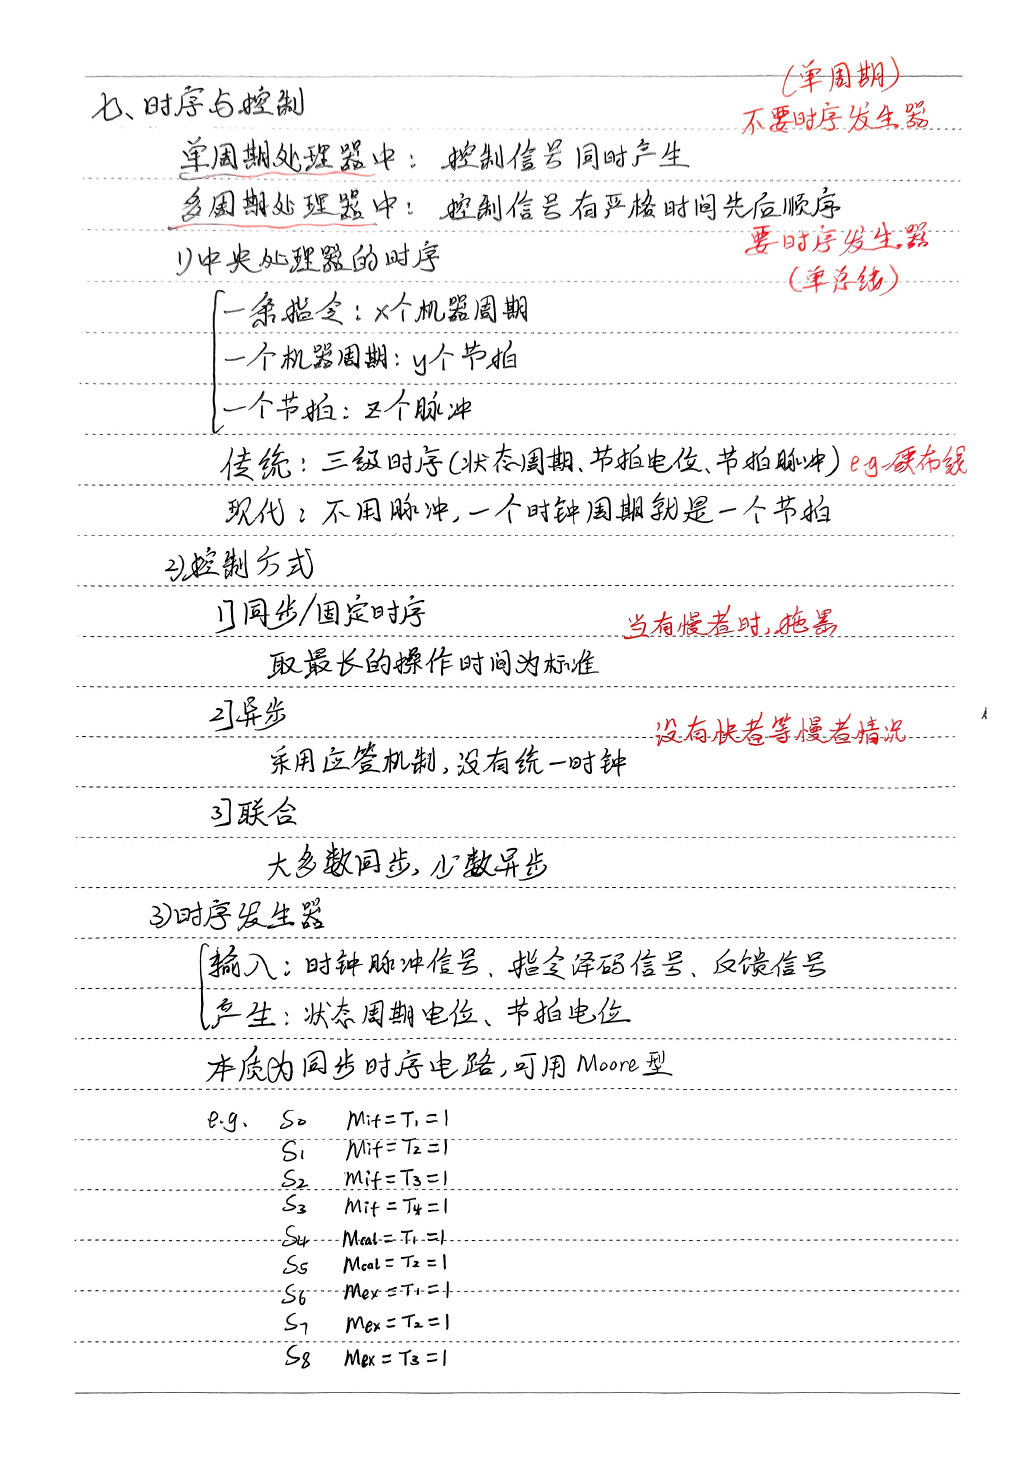 (单周期)
七、时序与控制
不要时序发生器
单周期处理器中: 控制信号同时产生
多周期处理器中: 控制信号有严格时间先后顺序
要时序发生器
(单总线)
1)中央处理器的时序
一条指令: x个机器周期
一个机器周期: y个节拍
一个节拍: z个脉冲
传统: 三级时序(状态周期、节拍电位、节拍脉冲) e.g.硬布线
现代: 不用脉冲,一个时钟周期就是一个节拍
2)控制方式
1]同步/固定时序
当有慢者时,拖累
取最长的操作时间为标准
2]异步
没有快者等慢者情况
采用应答机制,没有统一时钟
3]联合
大多数同步,少数异步
3)时序发生器
输入: 时钟脉冲信号、指令译码信号、反馈信号
产生: 状态周期电位、节拍电位
本质为同步时序电路,可用Moore型
e.g. S0 Mif=T1=1
S1 Mif=T2=1
S2 Mif=T3=1
S3 Mif=T4=1
S4 Mcal=T1=1
S5 Mcal=T2=1
S6 Mex=T1=1
S7 Mex=T2=1
S8 Mex=T3=1